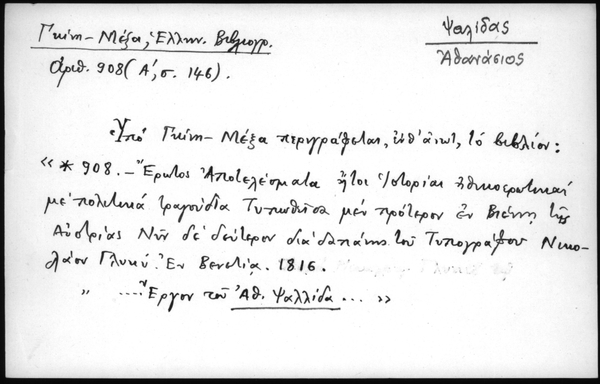 Γκίνη - Μέξα, Ἑλλην. Βιβλιογρ.
ἀριθ. 908 (Α΄, σ. 146).
Ψαλίδας
Ἀθανάσιος
Ὑπό Γκίνη - Μέξα περιγράφεται, ὑπ' ἀριθ., τό βιβλίον:
« * 908. _ Ἔρωτος Ἀποτελέσματα ἤτοι Ἱστορίαι ἠθικοερωτικαί
μέ πολιτικά τραγούδια Τυπωθεῖσα μέν πρότερον ἐν Βιέννῃ τῆς
Αὐστρίας Νῦν δέ δεύτερον διά δαπάνης τοῦ Τυπογράφου Νικο-
λάου Γλυκύ. Ἐν Βενετίᾳ. 1816.
" .... Ἔργον τοῦ Ἀθ. Ψαλλίδα ... »